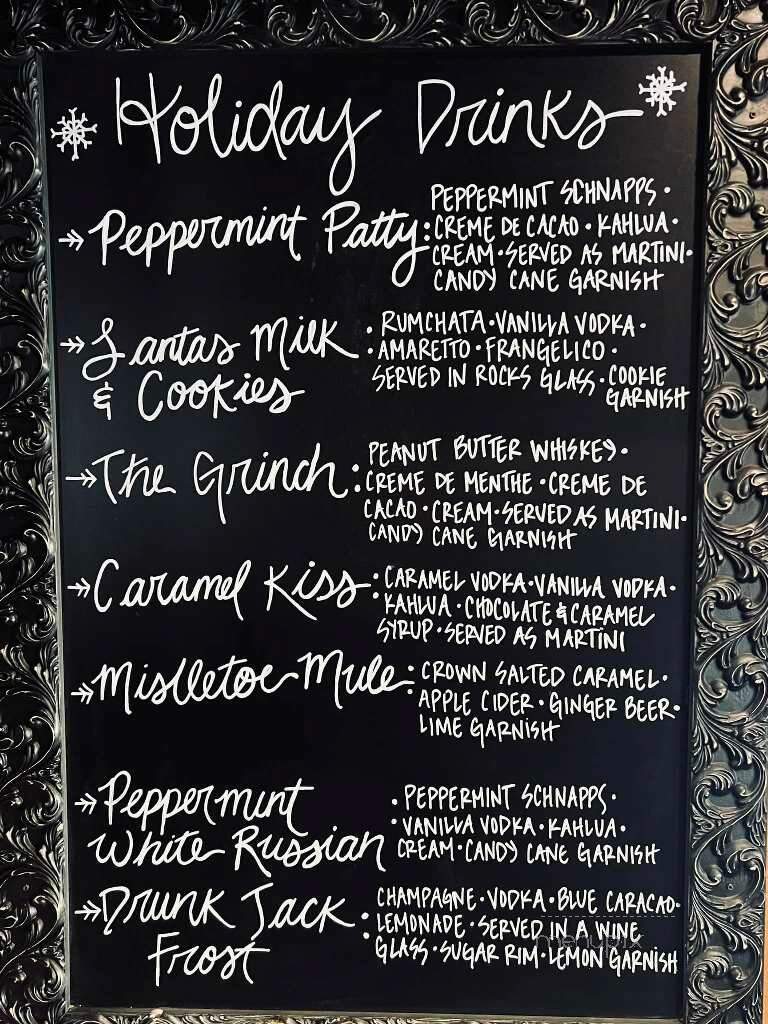 Holiday Drinks
Peppermint Patty: PEPPERMINT SCHNAPPS ·
CREME DE CACAO · KAHLUA ·
CREAM · SERVED AS MARTINI ·
CANDY CANE GARNISH
Santas Milk
& Cookies
: RUMCHATA · VANILLA VODKA ·
AMARETTO · FRANGELICO ·
SERVED IN ROCKS GLASS · COOKIE
GARNISH
The Grinch: PEANUT BUTTER WHISKEY ·
CREME DE MENTHE · CREME DE
CACAO · CREAM · SERVED AS MARTINI ·
CANDY CANE GARNISH
Caramel Kiss: CARAMEL VODKA · VANILLA VODKA ·
KAHLUA · CHOCOLATE & CARAMEL
SYRUP · SERVED AS MARTINI
Mislletoe Mule: CROWN SALTED CARAMEL ·
APPLE CIDER · GINGER BEER ·
LIME GARNISH
Peppermint
White Russian
: PEPPERMINT SCHNAPPS ·
VANILLA VODKA · KAHLUA ·
CREAM · CANDY CANE GARNISH
Drunk Jack
Frost
: CHAMPAGNE · VODKA · BLUE CARACAO ·
LEMONADE · SERVED IN A WINE
GLASS · SUGAR RIM · LEMON GARNISH
menupix